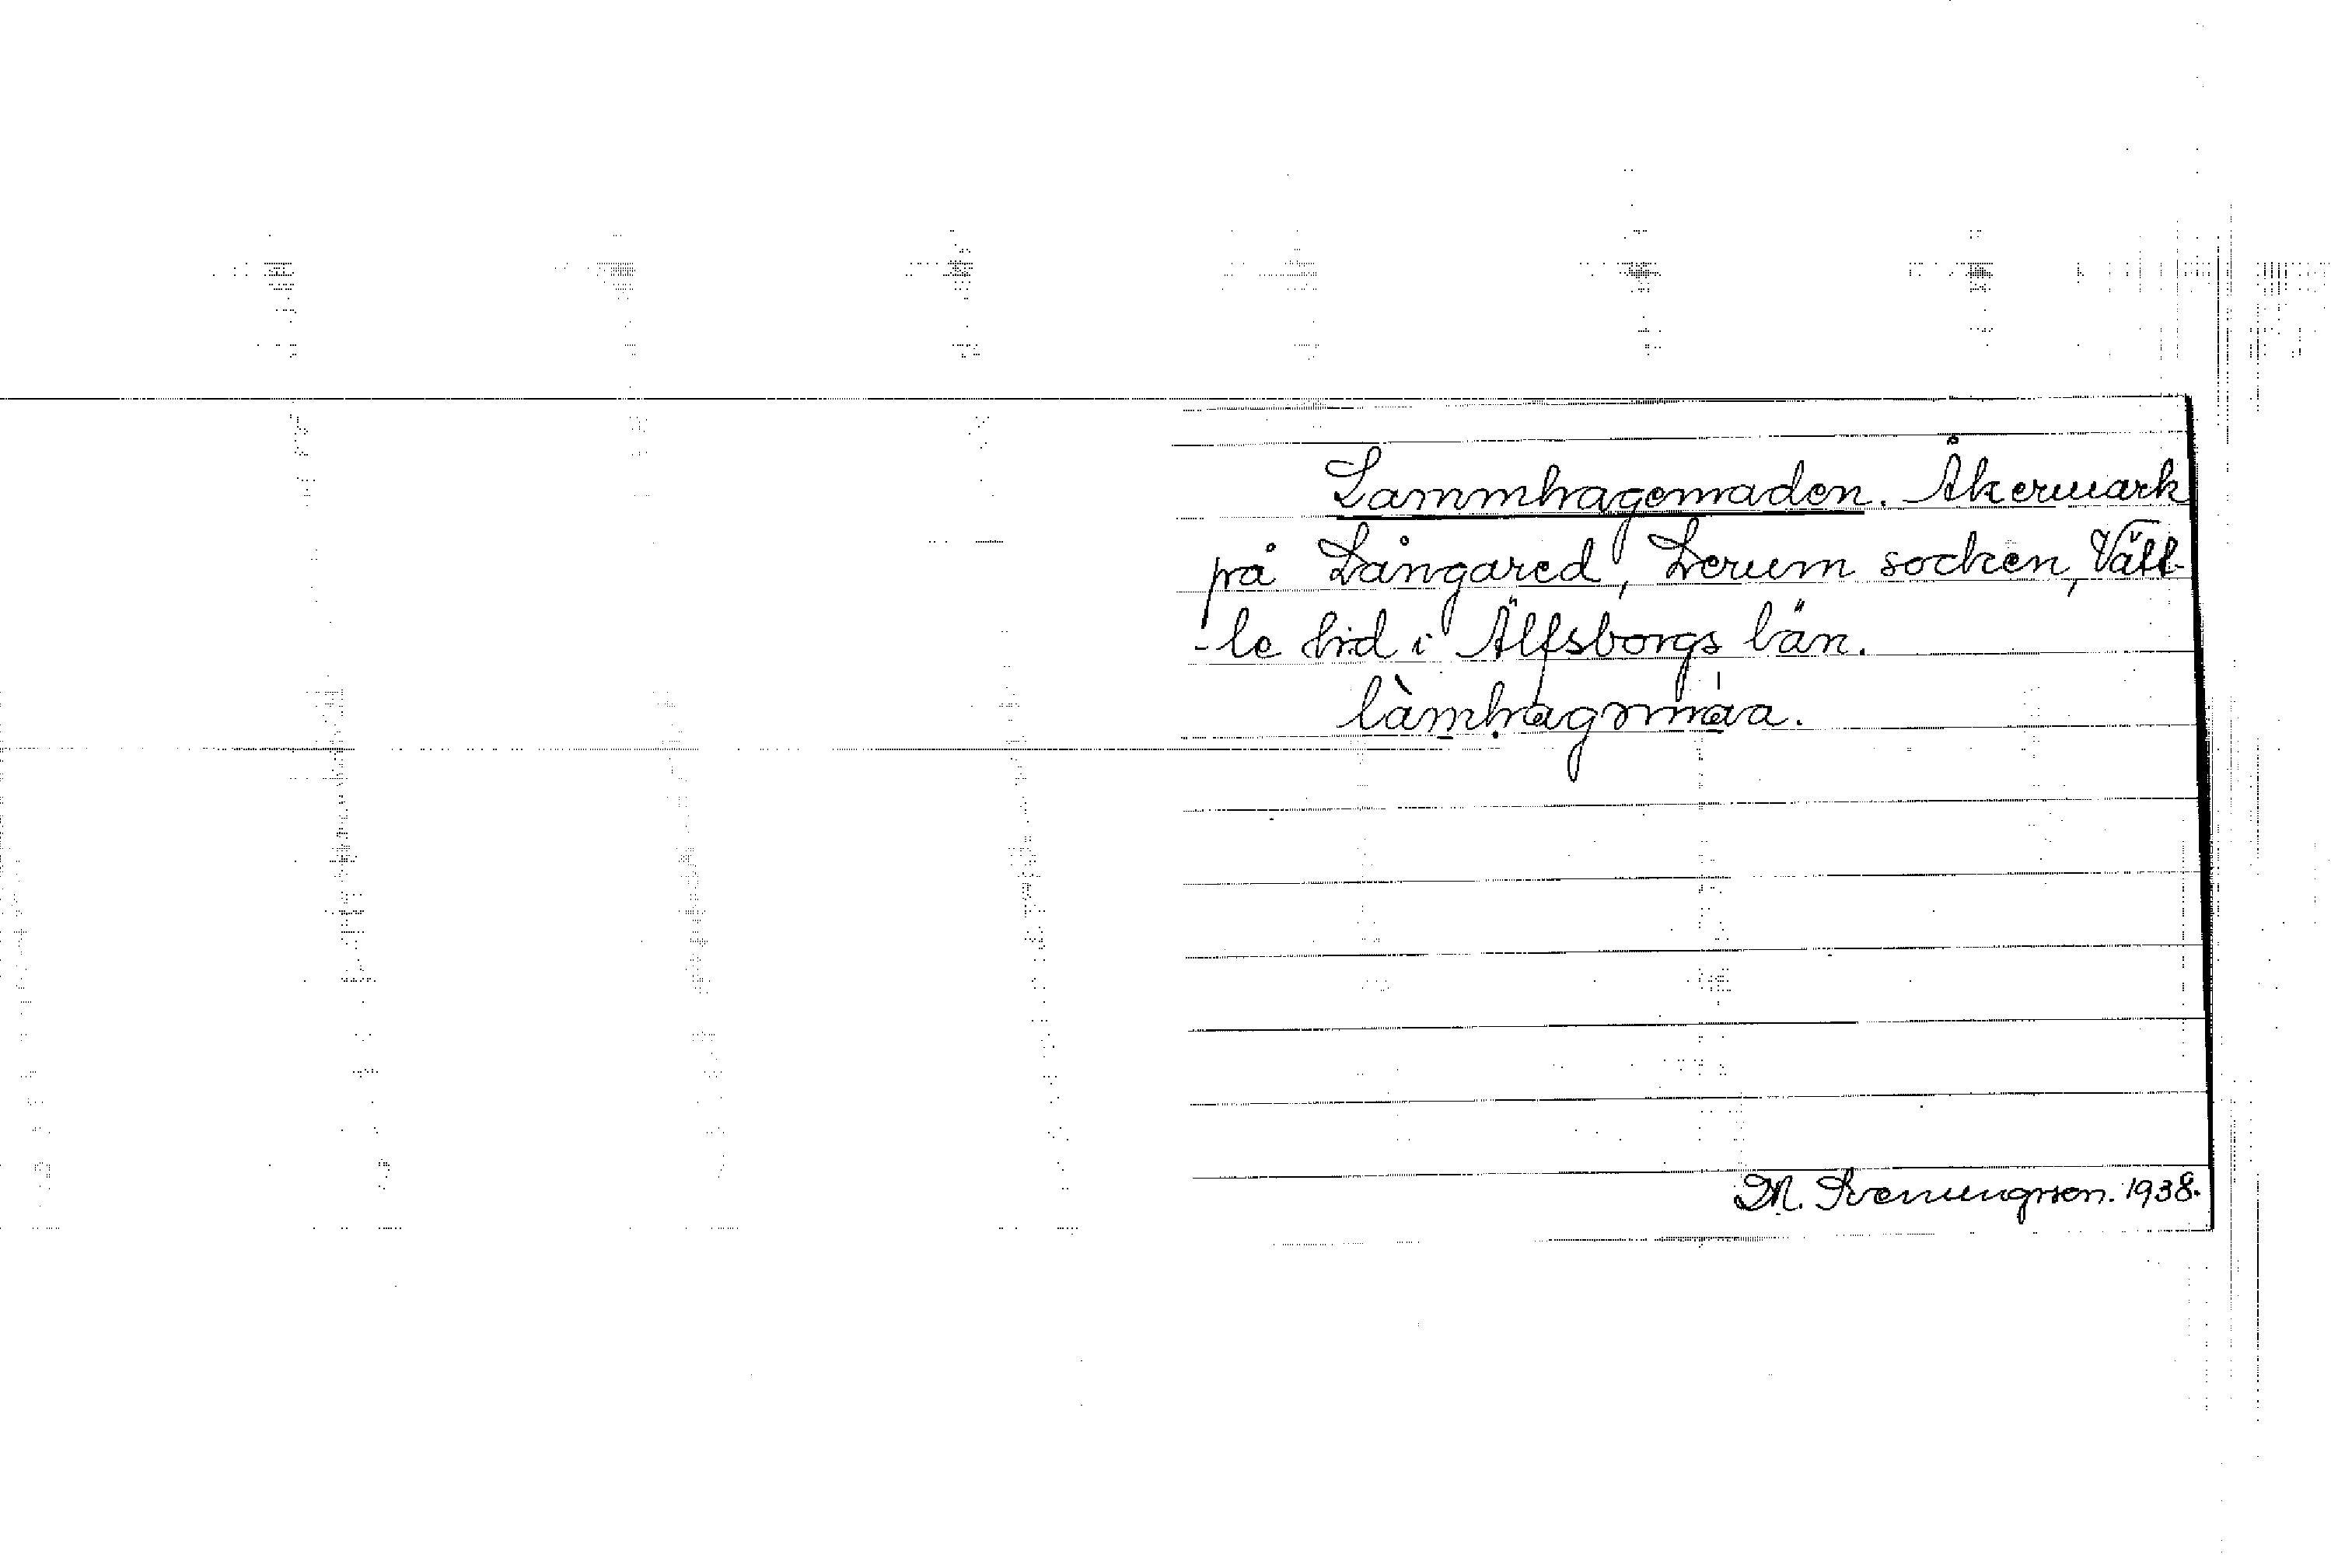 Lammhagemaden. Åkermark
på Långared, Lerum socken, Vätt-
-le hd i Älfsborgs län.
làmhagmmáa.
M. Svenungson. 1938.